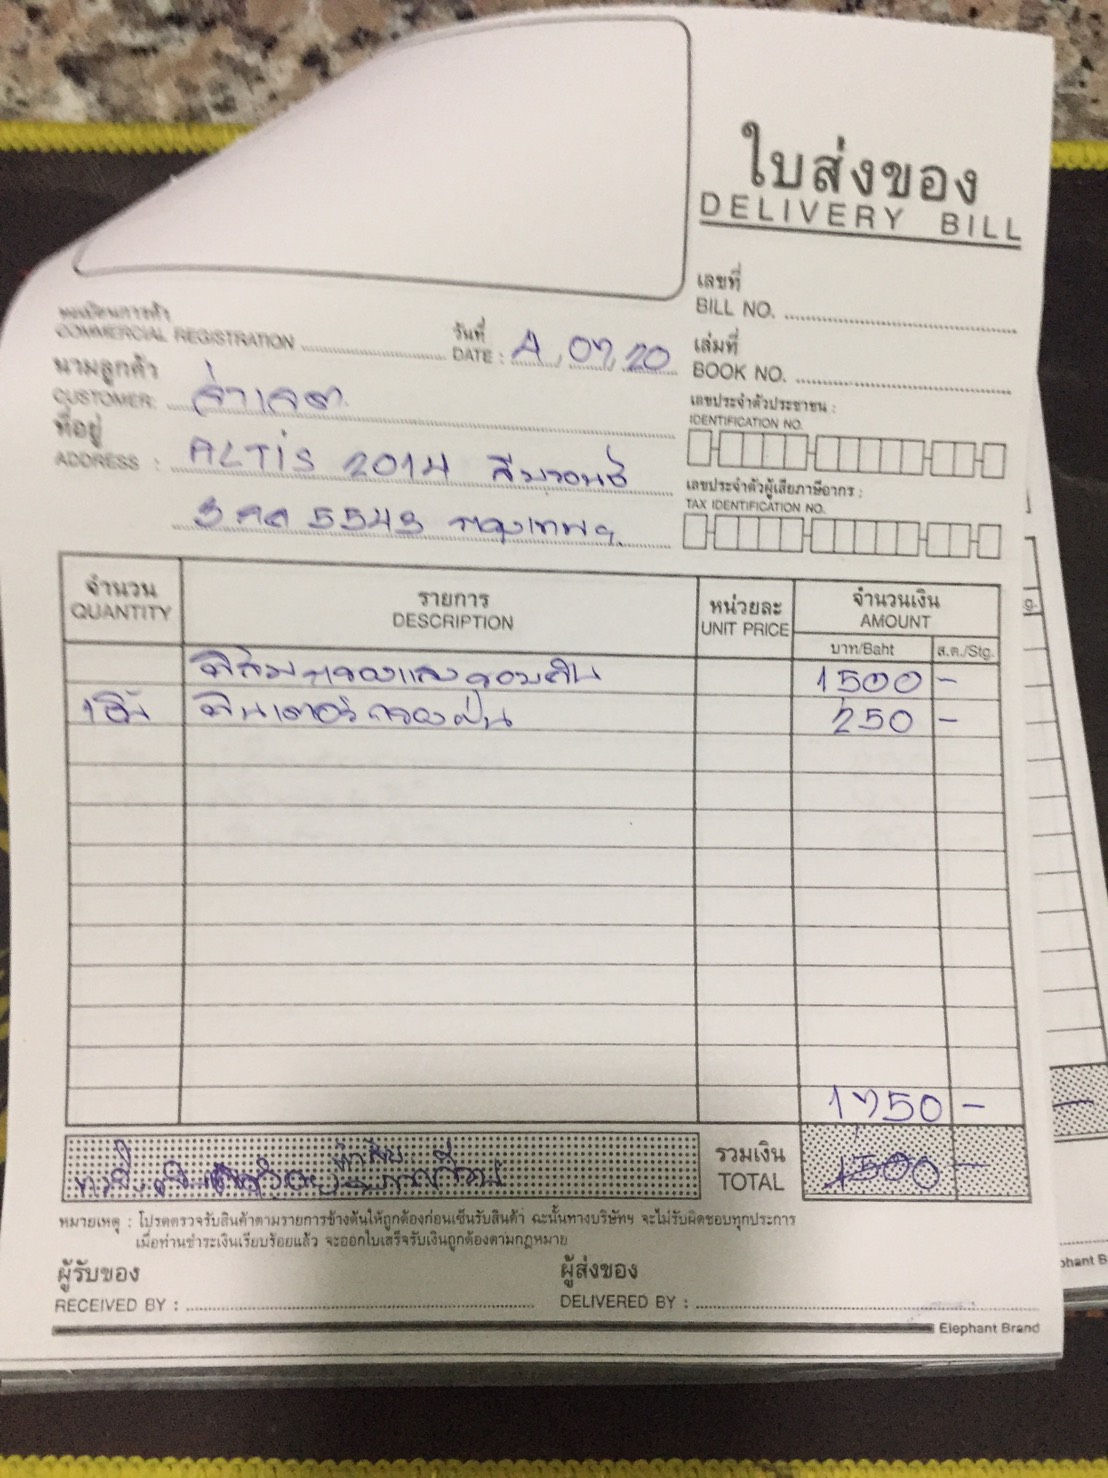 ใบส่งของ
DELIVERY BILL
เลขที่
BILL NO.
ทะเบียนการค้า
COMMERCIAL REGISTRATION
วันที่
DATE : 4, 07, 20
เล่มที่
BOOK NO.
นามลูกค้า
CUSTOMER:
เลขประจำตัวประชาชน :
IDENTIFICATION NO.
ที่อยู่
ADDRESS : ALTIS 2014
เลขประจำตัวผู้เสียภาษีอากร :
TAX IDENTIFICATION NO.
5543 กรุงเทพฯ
จำนวน
QUANTITY
รายการ
DESCRIPTION
หน่วยละ
UNIT PRICE
จำนวนเงิน
AMOUNT
บาท/Baht
ส.ต./Stg.
ฟิล์มกรองแสงรอบคัน 1500 -
1 ชิ้น 250 -
1750 -
รวมเงิน
TOTAL
1500 -
หมายเหตุ : โปรดตรวจรับสินค้าตามรายการข้างต้นให้ถูกต้องก่อนเซ็นรับสินค้า ฉะนั้นทางบริษัทฯ จะไม่รับผิดชอบทุกประการ
เมื่อท่านชำระเงินเรียบร้อยแล้ว จะออกใบเสร็จรับเงินถูกต้องตามกฎหมาย
ผู้รับของ
RECEIVED BY :
ผู้ส่งของ
DELIVERED BY :
Elephant Brand